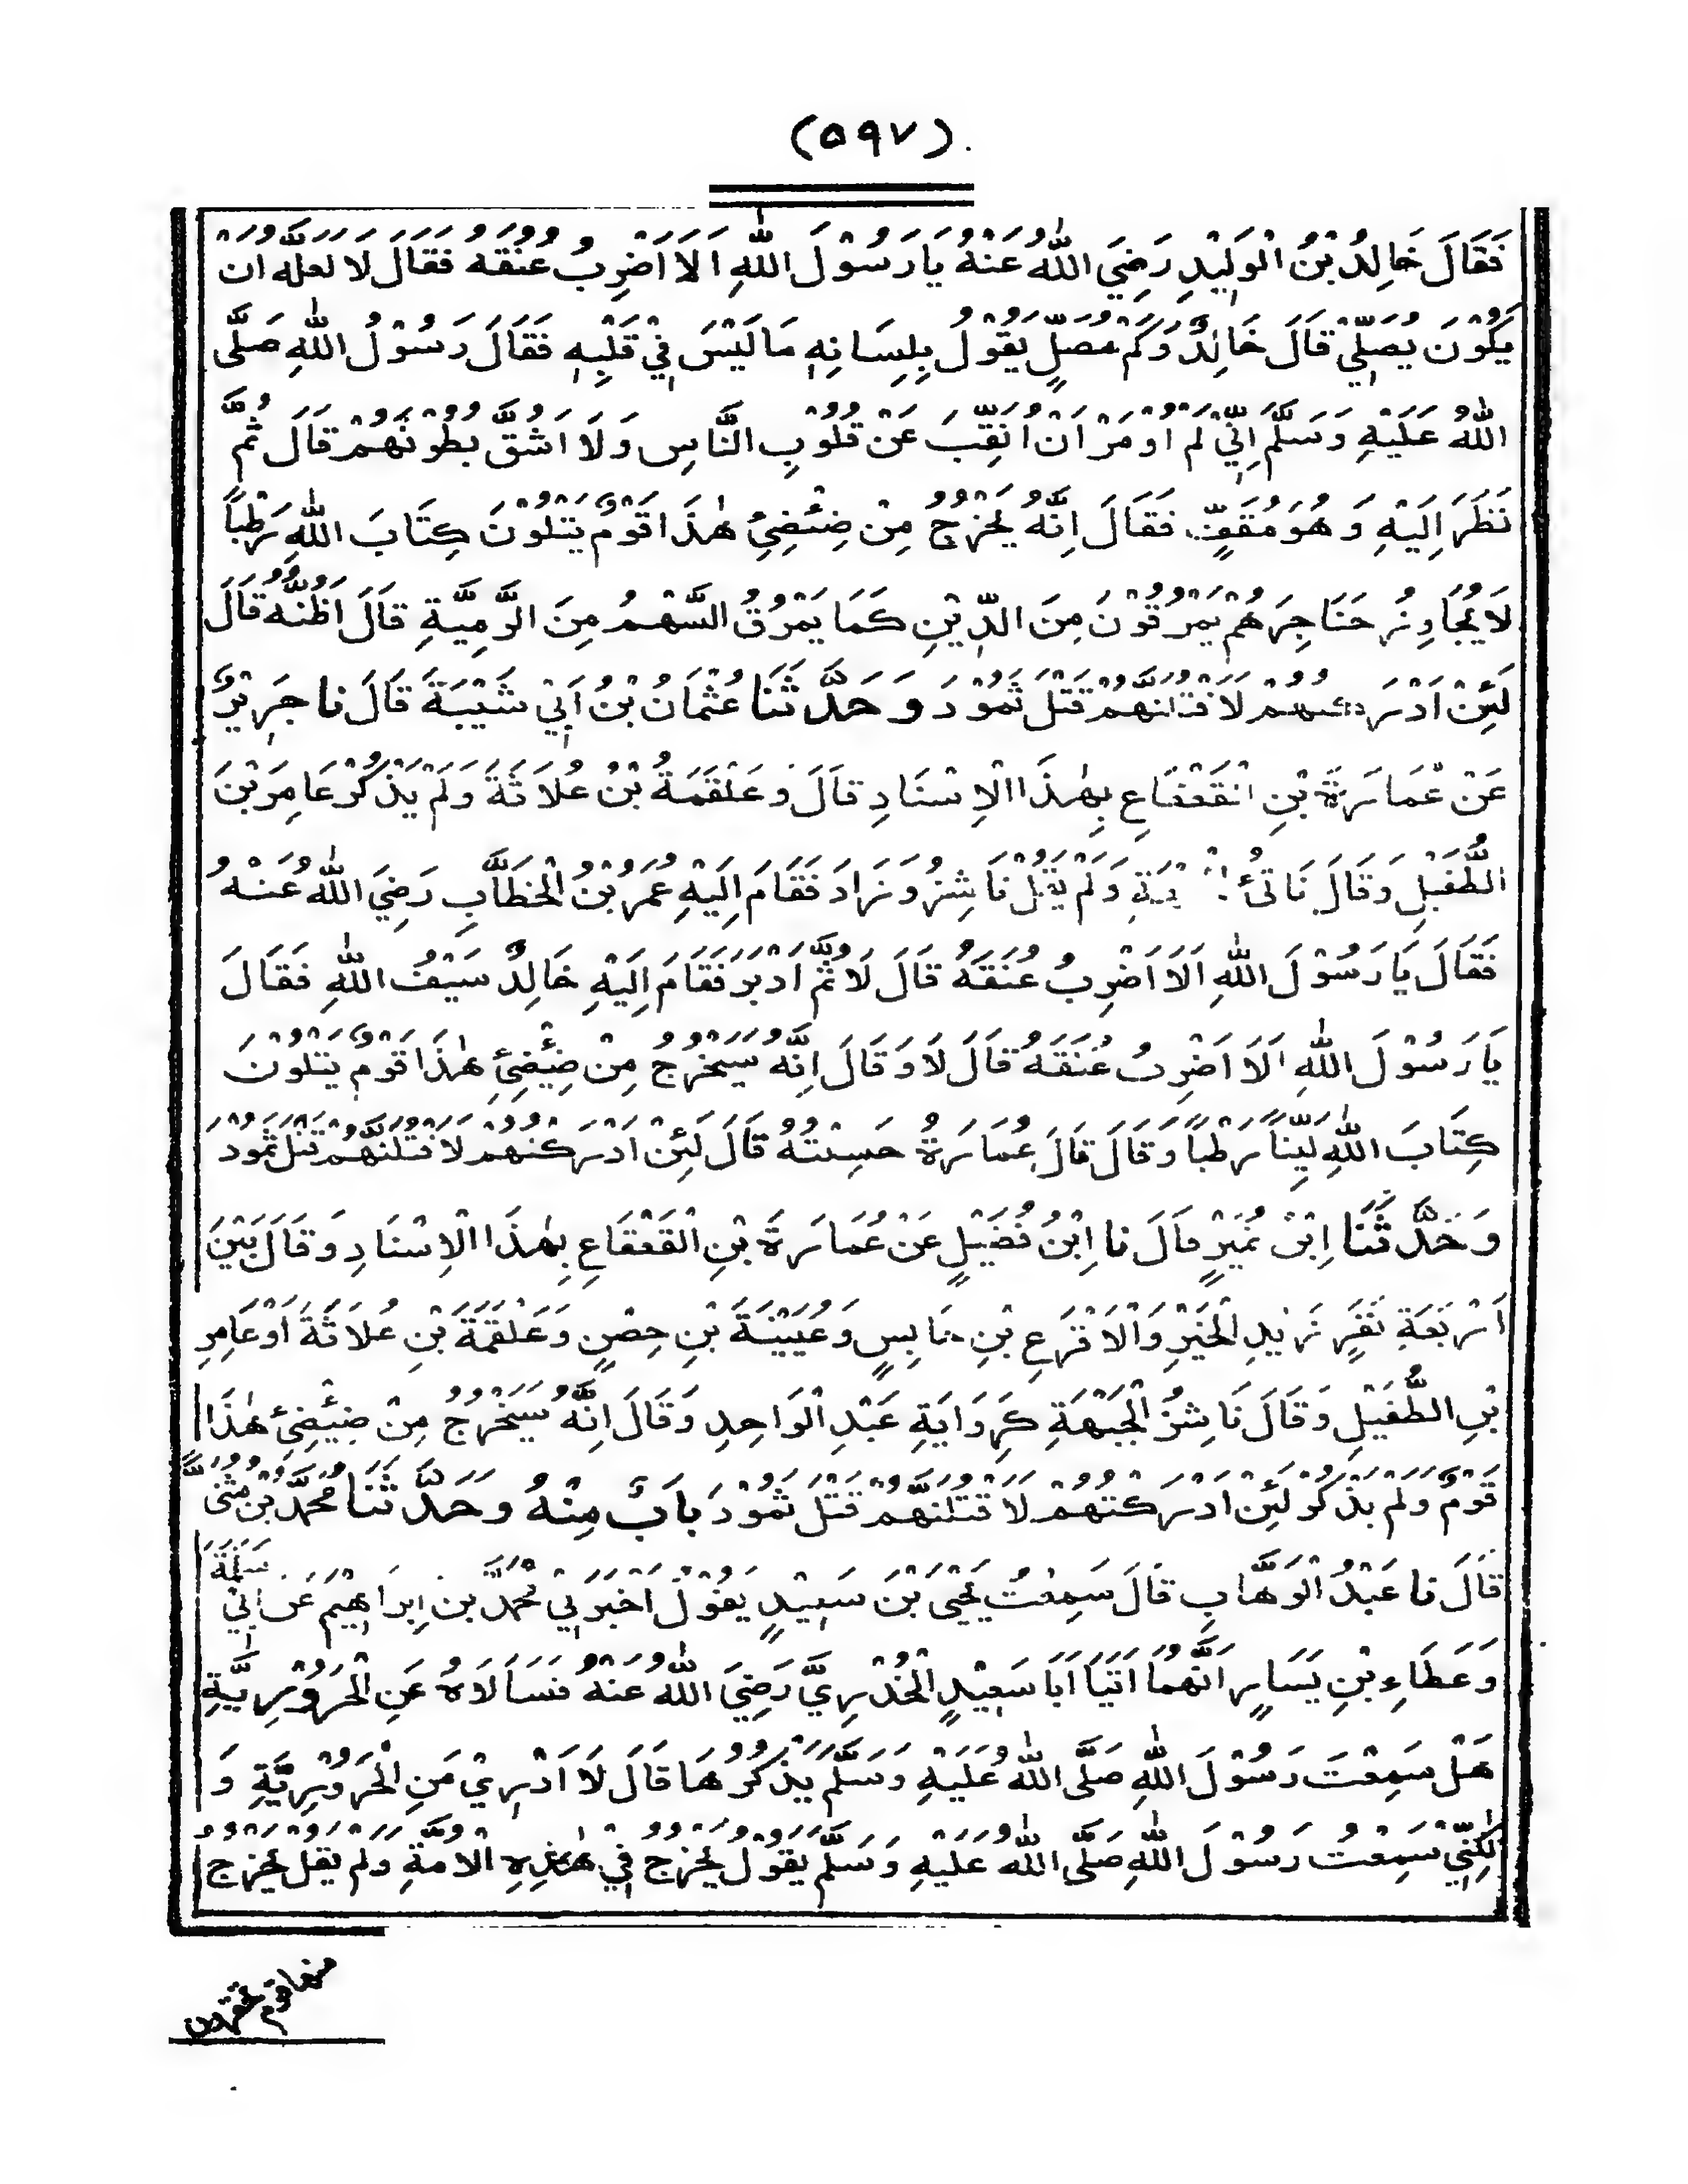 (٥٩٧)
فَقَالَ خَالِدُ بْنُ الْوَلِيْدِ رَضِيَ اللّٰهُ عَنْهُ يَا رَسُوْلَ اللّٰهِ اَلَا اَضْرِبُ عُنُقَهُ فَقَالَ لَا لَعَلَّهُ اَنْ
يَكُوْنَ يُصَلِّيْ قَالَ خَالِدٌ وَكَمْ مُصَلٍّ يَقُوْلُ بِلِسَانِهٖ مَا لَيْسَ فِيْ قَلْبِهٖ فَقَالَ رَسُوْلُ اللّٰهِ صَلَّى
اللّٰهُ عَلَيْهِ وَسَلَّمَ اِنِّيْ لَمْ اُوْمَرْ اَنْ اُنَقِّبَ عَنْ قُلُوْبِ النَّاسِ وَلَا اَشُقَّ بُطُوْنَهُمْ قَالَ ثُمَّ
نَظَرَ اِلَيْهِ وَهُوَ مُقَفٍّ فَقَالَ اِنَّهُ يَخْرُجُ مِنْ ضِئْضِئِ هٰذَا قَوْمٌ يَتْلُوْنَ كِتَابَ اللّٰهِ رَطْبًا
لَا يُجَاوِزُ حَنَاجِرَهُمْ يَمْرُقُوْنَ مِنَ الدِّيْنِ كَمَا يَمْرُقُ السَّهْمُ مِنَ الرَّمِيَّةِ قَالَ اَظُنُّهُ قَالَ
لَئِنْ اَدْرَكْتُهُمْ لَاَقْتُلَنَّهُمْ قَتْلَ ثَمُوْدَ وَحَدَّثَنَا عُثْمَانُ بْنُ اَبِيْ شَيْبَةَ قَالَ نا جَرِيْرٌ
عَنْ عُمَارَةَ بْنِ الْقَعْقَاعِ بِهٰذَا الْاِسْنَادِ قَالَ وَعَلْقَمَةُ بْنُ عُلَاثَةَ وَلَمْ يَذْكُرْ عَامِرَ بْنَ
الطُّفَيْلِ وَقَالَ نَاتِئُ الْجَبْهَةِ وَلَمْ يَقُلْ نَاشِزُ وَزَادَ فَقَامَ اِلَيْهِ عُمَرُ بْنُ الْخَطَّابِ رَضِيَ اللّٰهُ عَنْهُ
فَقَالَ يَا رَسُوْلَ اللّٰهِ اَلَا اَضْرِبُ عُنَقَهُ قَالَ لَا ثُمَّ اَدْبَرَ فَقَامَ اِلَيْهِ خَالِدٌ سَيْفُ اللّٰهِ فَقَالَ
يَا رَسُوْلَ اللّٰهِ اَلَا اَضْرِبُ عُنَقَهُ قَالَ لَا وَقَالَ اِنَّهُ سَيَخْرُجُ مِنْ ضِئْضِئِ هٰذَا قَوْمٌ يَتْلُوْنَ
كِتَابَ اللّٰهِ لَيِّنًا رَطْبًا وَقَالَ قَالَ عُمَارَةُ حَسِبْتُهُ قَالَ لَئِنْ اَدْرَكْتُهُمْ لَاَقْتُلَنَّهُمْ قَتْلَ ثَمُوْدَ
وَحَدَّثَنَا اِبْنُ نُمَيْرٍ قَالَ نا اِبْنُ فُضَيْلٍ عَنْ عُمَارَةَ بْنِ الْقَعْقَاعِ بِهٰذَا الْاِسْنَادِ وَقَالَ بَيْنَ
اَرْبَعَةِ نَفَرٍ زَيْدِ الْخَيْرِ وَالْاَقْرَعِ بْنِ حَابِسٍ وَعُيَيْنَةَ بْنِ حِصْنٍ وَعَلْقَمَةَ بْنِ عُلَاثَةَ اَوْ عَامِرِ
بْنِ الطُّفَيْلِ وَقَالَ نَاشِزُ الْجَبْهَةِ كَرِوَايَةِ عَبْدِ الْوَاحِدِ وَقَالَ اِنَّهُ سَيَخْرُجُ مِنْ ضِئْضِئِ هٰذَا
قَوْمٌ وَلَمْ يَذْكُرْ لَئِنْ اَدْرَكْتُهُمْ لَاَقْتُلَنَّهُمْ قَتْلَ ثَمُوْدَ بَابٌ مِنْهُ وَحَدَّثَنَا مُحَمَّدُ بْنُ مُثَنًّى
قَالَ نا عَبْدُ الْوَهَّابِ قَالَ سَمِعْتُ يَحْيَى بْنَ سَعِيْدٍ يَقُوْلُ اَخْبَرَنِيْ مُحَمَّدُ بْنُ اِبْرَاهِيْمَ عَنْ اَبِيْ سَلَمَةَ
وَعَطَاءِ بْنِ يَسَارٍ اَنَّهُمَا اَتَيَا اَبَا سَعِيْدٍ الْخُدْرِيَّ رَضِيَ اللّٰهُ عَنْهُ فَسَاَلَاهُ عَنِ الْحَرُوْرِيَّةِ
هَلْ سَمِعْتَ رَسُوْلَ اللّٰهِ صَلَّى اللّٰهُ عَلَيْهِ وَسَلَّمَ يَذْكُرُهَا قَالَ لَا اَدْرِيْ مَنِ الْحَرُوْرِيَّةِ وَ
لٰكِنِّيْ سَمِعْتُ رَسُوْلَ اللّٰهِ صَلَّى اللّٰهُ عَلَيْهِ وَسَلَّمَ يَقُوْلُ يَخْرُجُ فِيْ هٰذِهِ الْاُمَّةِ وَلَمْ يَقُلْ يَخْرُجُ